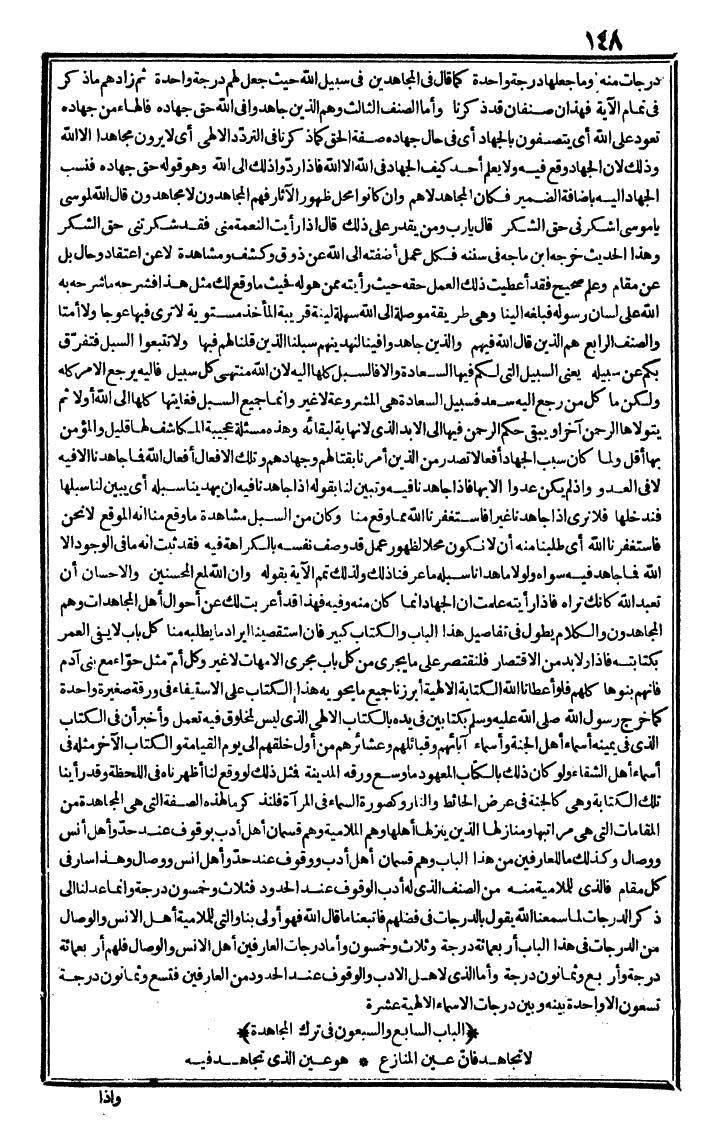 ١٤٨
درجات منه وما جعلها درجة واحدة كما قال فى المجاهدين فى سبيل الله حيث جعل لهم درجة واحدة ثم زادهم ما ذكر
فى تمام الآية فهذان صنفان قد ذكرنا وأما الصنف الثالث وهم الذين جاهدوا فى الله حق جهاده فالهاء من جهاده
تعود على الله أى يتصفون بالجهاد أى فى حال جهاده صفة الحق كما ذكرنا فى التردّد الالهى أى لا يرون مجاهدا الا الله
وذلك لان الجهاد وقع فيه ولا يعلم أحد كيف الجهاد فى الله الا الله فاذا ردّوا ذلك الى الله وهو قوله حق جهاده فنسب
الجهاد اليه باضافة الضمير فكان المجاهد لاهم وان كانوا محل ظهور الآثار فهم المجاهدون لا مجاهدون قال الله لموسى
ياموسى اشكرنى حق الشكر قال يارب ومن يقدر على ذلك قال اذا رأيت النعمة منى فقد شكرتنى حق الشكر
وهذا الحديث خرجه ابن ماجه فى سننه فكل عمل أضفته الى الله عن ذوق وكشف ومشاهدة لا عن اعتقاد وحال بل
عن مقام وعلم صحيح فقد أعطيت ذلك العمل حقه حيث رأيته ممن هو له فحيث ما وقع لك مثل هذا فشرحه ما شرحه به
الله على لسان رسوله فبلغه الينا وهى طريقة موصلة الى الله سهلة لينة قريبة المأخذ مستوية لا ترى فيها عوجا ولا أمتا
والصنف الرابع هم الذين قال الله فيهم والذين جاهدوا فينا لنهدينهم سبلنا الذين قلنا لهم فيها ولا تتبعوا السبل فتفرّق
بكم عن سبيله يعنى السبيل التى لكم فيها السعادة والا فالسبل كلها اليه لان الله منتهى كل سبيل فاليه يرجع الامر كله
ولكن ما كل من رجع اليه سعد فسبيل السعادة هى المشروعة لا غير وانما جميع السبل فغايتها كلها الى الله أولا ثم
يتولاها الرحمن آخرا ويبقى حكم الرحمن فيها الى الابد الذى لا نهاية لبقائه وهذه مسئلة عجيبة المكاشف لها قليل والمؤمن
بها أقل ولما كان سبب الجهاد أفعالا تصدر من الذين أمرنا بقتالهم وجهادهم وتلك الافعال أفعال الله فما جاهدنا الا فيه
لا فى العدو واذ لم يكن عدوا الا بها فاذا جاهدنا فيه وتبين لنا بقوله اذا جاهدنا فيه ان يهدينا سبله أى يبين لنا سبلها
فندخلها فلا نرى اذا جاهدنا غيرا فاستغفرنا الله مما وقع منا وكان من السبل مشاهدة ما وقع منا انه الموقع لا نحن
فاستغفرنا الله أى طلبنا منه أن لا نكون محلا لظهور عمل قد وصف نفسه بالكراهة فيه فقد ثبت انه ما فى الوجود الا
الله فما جاهد فيه سواه ولولا ما هدانا سبله ما عرفنا ذلك ولذلك تمم الآية بقوله وان الله لمع المحسنين والاحسان أن
تعبد الله كانك تراه فاذا رأيته علمت ان الجهاد انما كان منه وفيه فهذا قد أعربت لك عن أحوال أهل المجاهدات وهم
المجاهدون والكلام يطول فى تفاصيل هذا الباب والكتاب كبير فان استقصينا ايراد ما يطلبه منا كل باب لا يفى العمر
بكتابته فاذا ولابد من الاقتصار فلنقتصر على ما يجرى من كل باب مجرى الامهات لا غير وكل أمّ مثل حوّاء مع بنى آدم
فانهم بنوها كلهم فلو أعطانا الله الكتابة الالهية أبرزنا جميع ما يحويه هذا الكتاب على الاستيفاء فى ورقة صغيرة واحدة
كما خرج رسول الله صلى الله عليه وسلم بكتابين فى يده بالكتاب الالهى الذى ليس لمخلوق فيه تعمل وأخبر أن فى الكتاب
الذى فى يمينه أسماء أهل الجنة وأسماء آبائهم وقبائلهم وعشائرهم من أول خلقهم الى يوم القيامة والكتاب الآخر مثله فى
أسماء أهل الشقاء ولو كان ذلك بالكتاب المعهود ما وسع ورقه المدينة فمثل ذلك لو وقع لنا أظهرناه فى اللحظة وقد رأينا
تلك الكتابة وهى كالجنة فى عرض الحائط والنار وكصورة السماء فى المرآة فلنذكر ما لهذه الصفة التى هى المجاهدة من
المقامات التى هى مراتبها ومنازلها الذين ينزلها أهلها وهم الملامية وهم قسمان أهل أدب بوقوف عند حدّ وأهل أنس
ووصال وكذلك ما للعارفين من هذا الباب وهم قسمان أهل أدب ووقوف عند حدّ وأهل انس ووصال وهذا سار فى
كل مقام فالذى للملامية منه من الصنف الذى له أدب الوقوف عند الحدود فثلاث وخمسون درجة وانما عدلنا الى
ذكر الدرجات لما سمعنا الله يقول بالدرجات فى فضلهم فاتبعنا ما قال الله فهو أولى بنا والتى للملامية أهل الانس والوصال
من الدرجات فى هذا الباب أربعمائة درجة وثلاث وخمسون وأما درجات العارفين أهل الانس والوصال فلهم أربعمائة
درجة وأربع وثمانون درجة وأما الذى لاهل الادب والوقوف عند الحدود من العارفين فتسع وثمانون درجة
تسعون الا واحدة بينه وبين درجات الاسماء الالهية عشرة
﴿الباب السابع والسبعون فى ترك المجاهدة﴾
لا تجاهد فانّ عين المنازع * هو عين الذى تجاهد فيه
واذا